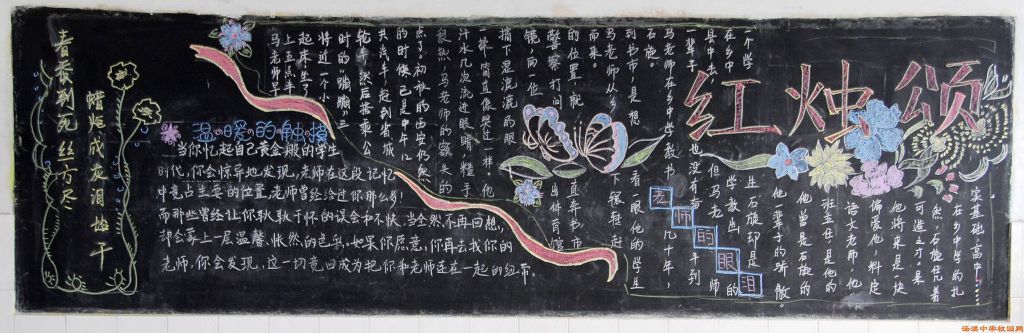 红烛颂
春蚕到死丝方尽
蜡炬成灰泪始干
温暖的触摸
当你忆起自己黄金般的学生
时代，你会惊异地发现，老师在这段记忆
中竟占主要的位置。老师曾经给过你那么多！
而那些曾经让你耿耿于怀的误会和不快，当全然不再回想，
却会蒙上一层温馨、怅然的色彩。如果你愿意，你再去找你的
老师，你会发现，这一切竟回成为把你和老师连在一起的纽带。
老师的眼泪
马老师早
上五点半
起床，坐了
将近一个小
时的“蹦蹦”三
轮车，然后搭乘公
共汽车赶到省城
的时候，已是中午12
点了。初秋的西安仍然
很热，马老师的额头的
汗水几次流进眼睛，糙手
一揉，简直像哭过一样。他
摘下湿漉漉的眼
镜，向一位
警察打问出体育馆
的位置，就直奔书市
而来。
马老师从乡下辗转赶
到书市，是想看眼他的学生
石旋。
马老师在乡中学教书几十年，
一辈子也没有半到
县中去，但马老师
在乡中学教的
一个学生石旋却是
他一辈子的骄傲。
他曾是石旋的
班主任，是他的
语文老师，他
偏爱他，料定
他将来是一块
可造之才。果
然，石旋凭着
在乡中学的扎
实基础，高中……
洛源中学校园网